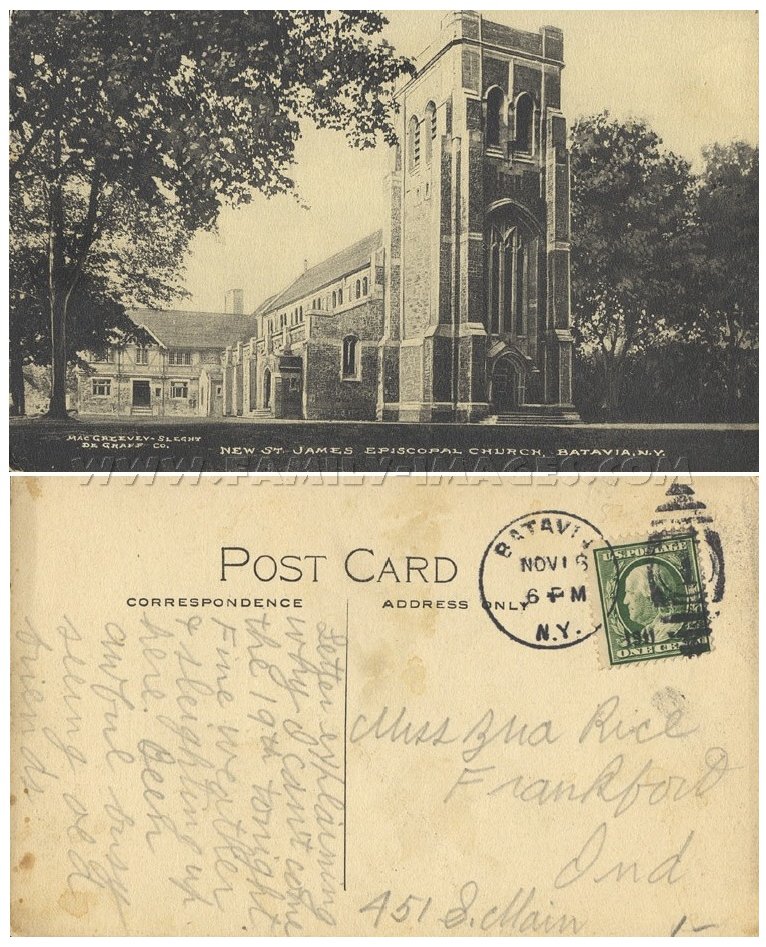 MACGREEVEY-SLEGHT
DE GRAFF CO.
NEW ST. JAMES EPISCOPAL CHURCH, BATAVIA, N.Y.
WWW.FAMILY-IMAGES.COM
POST CARD
CORRESPONDENCE
ADDRESS ONLY
BATAVIA
NOV 16
6 PM
N.Y.
U.S. POSTAGE
1911
ONE CE
Letter explaining
why I cant come
the 19th tonight
Fine weather
& sleighting up
here Been
awful busy
seeing old
friends
Miss Rice
Frankford
Ind
451 S. Main